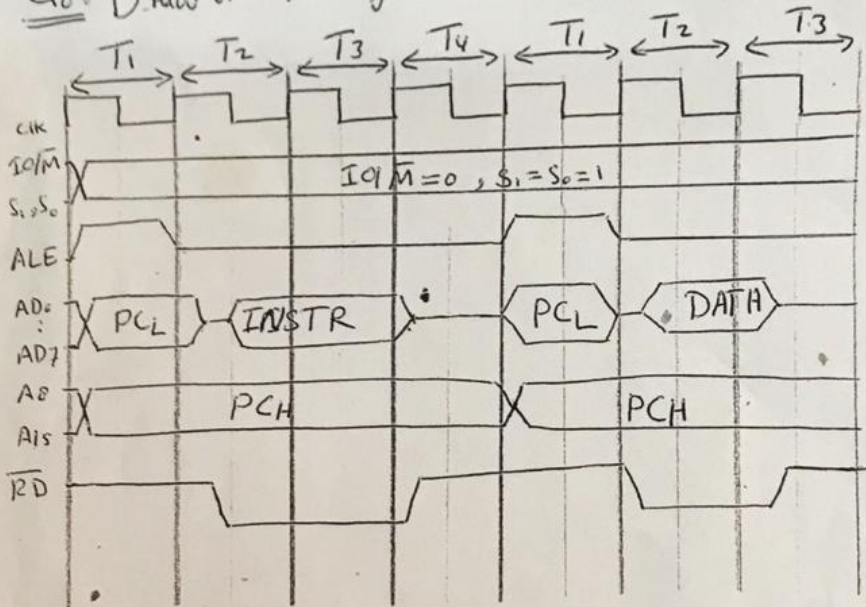 Draw
T1 T2 T3 T4 T1 T2 T.3
CLK
IO/M̅
IO/M̅=0 , S₁=S₀=1
S₁,S₀
ALE
AD₀
:
AD7
PCL INSTR PCL DATA
A8
A15
PCH PCH
R̅D̅